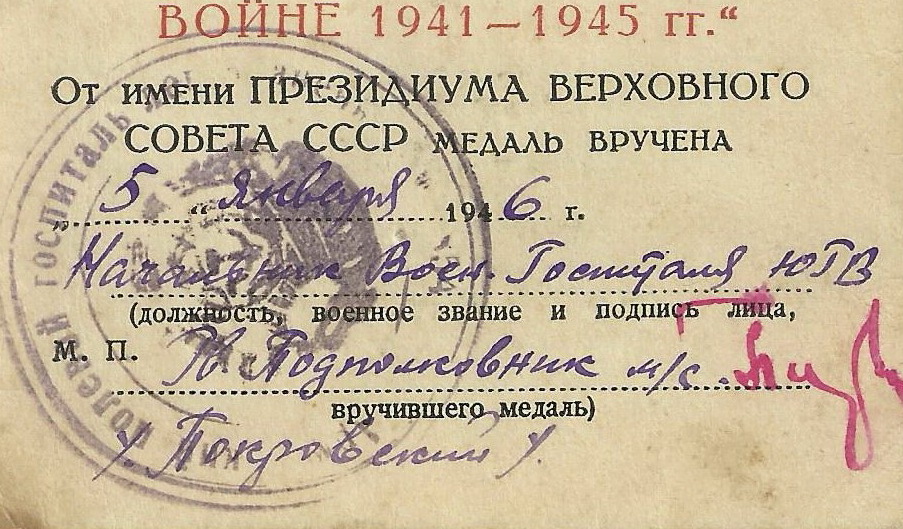 ВОЙНЕ 1941—1945 гг.“
От имени ПРЕЗИДИУМА ВЕРХОВНОГО
СОВЕТА СССР МЕДАЛЬ ВРУЧЕНА
„5“ января 1946 г.
Начальник Воен. Госпиталя ЮГВ
(должность, военное звание и подпись лица,
М. П. Подполковник м/с.
вручившего медаль)
/Покровский/.
ПОЛЕВОЙ ГОСПИТАЛЬ